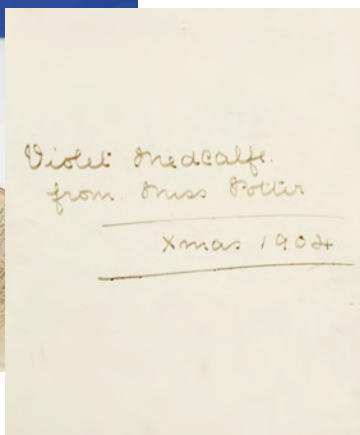 Violet Medcalfe.
from Miss Potter
Xmas 1904